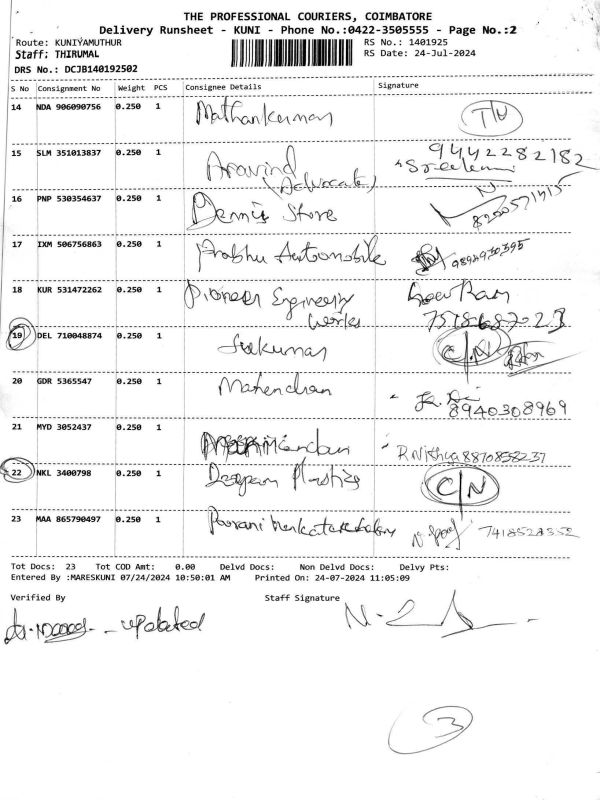 THE PROFESSIONAL COURIERS, COIMBATORE
Delivery Runsheet - KUNI - Phone No.:0422-3505555 - Page No.:2
Route: KUNIYAMUTHUR RS No.: 1401925
Staff: THIRUMAL RS Date: 24-Jul-2024
DRS No.: DCJB140192502
S No Consignment No Weight PCS Consignee Details Signature
14 NDA 906090756 0.250 1 Mathankumar
15 SLM 351013837 0.250 1 Aravind (Advocate) 9442282182
16 PNP 530354637 0.250 1 Dennis Store
17 IXM 506756863 0.250 1 Prabhu Automobile 9894930395
18 KUR 531472262 0.250 1 Pioneer Engineering Works
19 DEL 710048874 0.250 1 C/N
20 GDR 5365547 0.250 1 Mahendran 8940308969
21 MYD 3052437 0.250 1 R Nithya 8870858237
22 NKL 3400798 0.250 1 C/N
23 MAA 865790497 0.250 1 Poorani
Tot Docs: 23 Tot COD Amt: 0.00 Delvd Docs: Non Delvd Docs: Delvy Pts:
Entered By :MARESKUNI 07/24/2024 10:50:01 AM Printed On: 24-07-2024 11:05:09
Verified By Staff Signature
updated
3